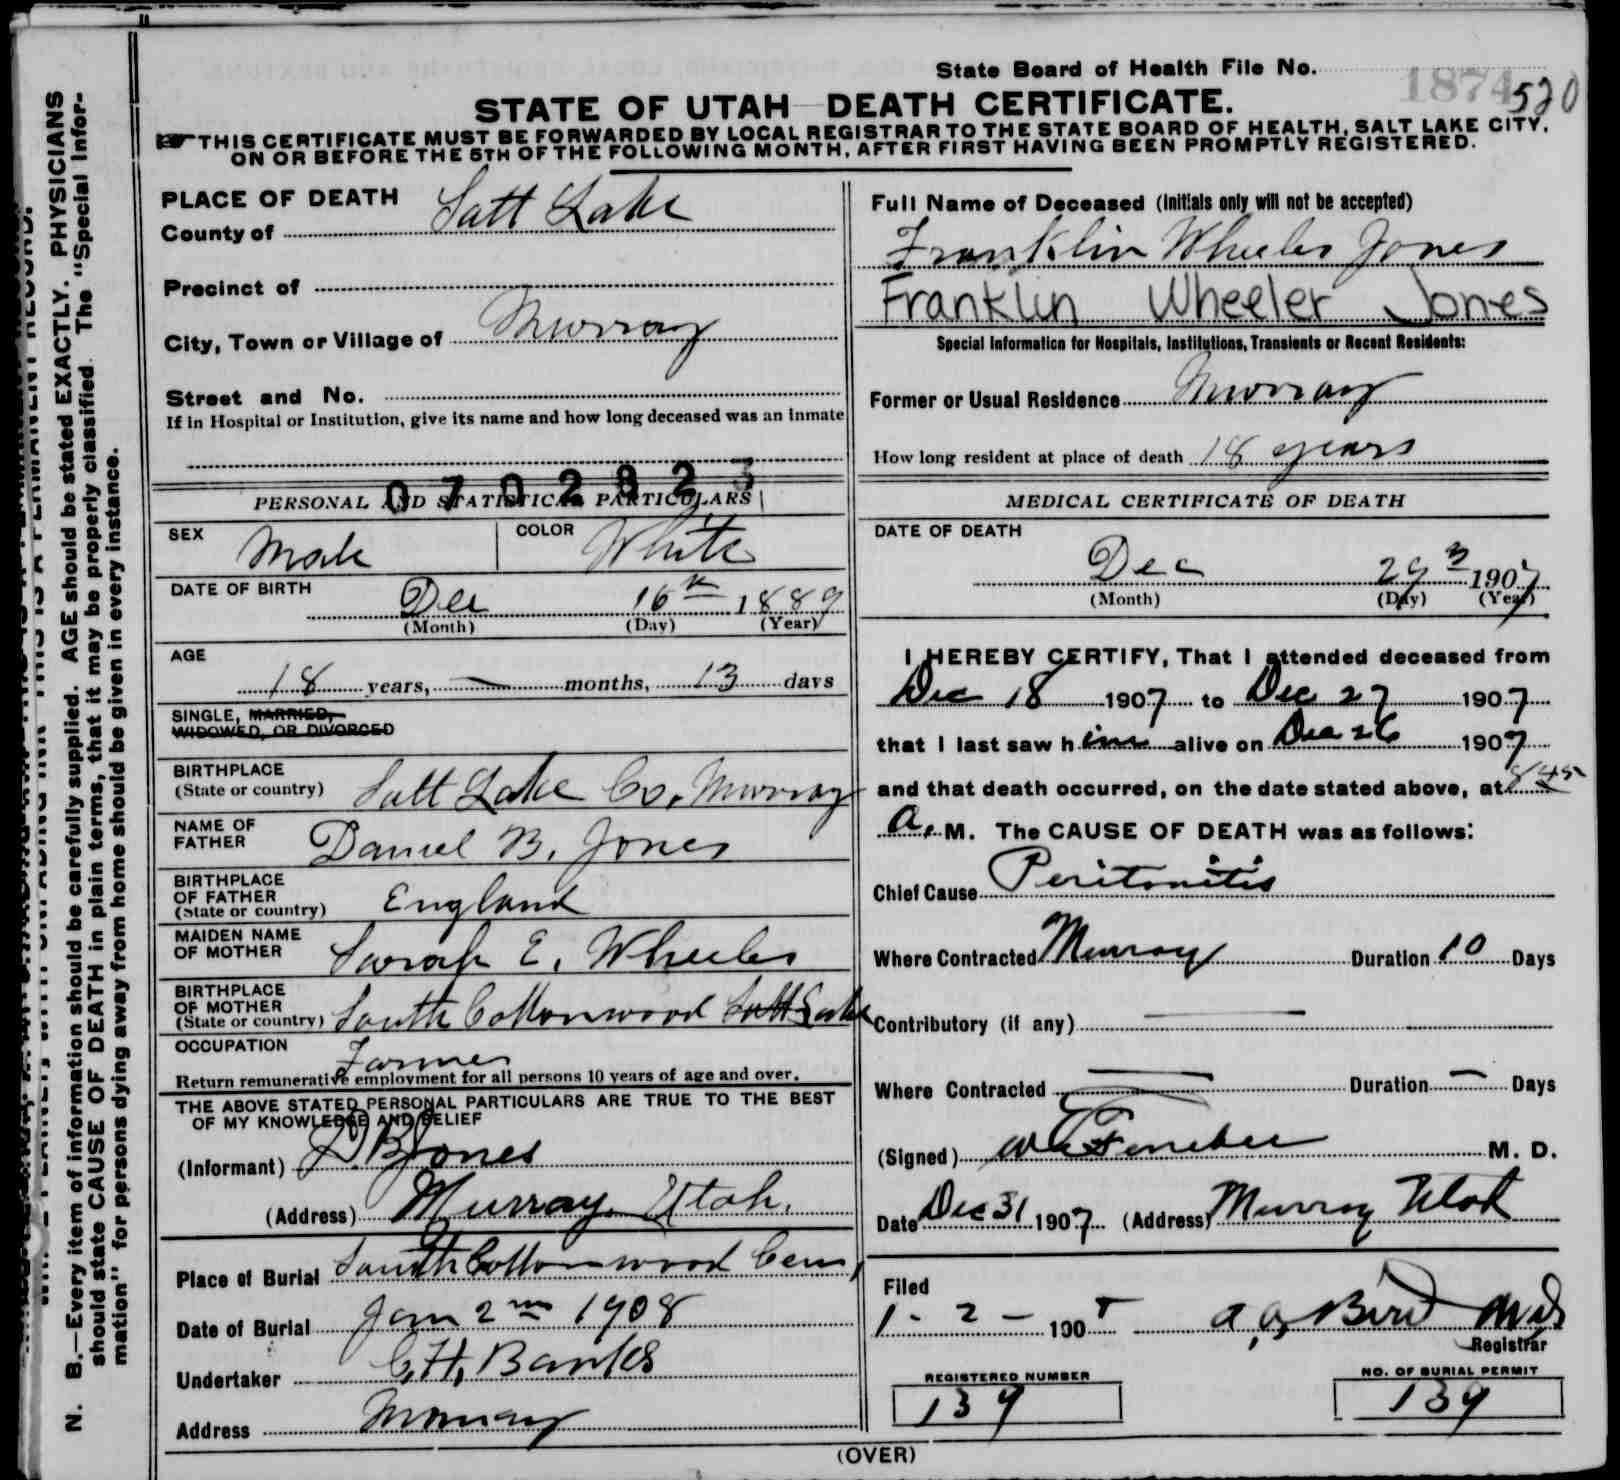 State Board of Health File No. 1874 520
STATE OF UTAH DEATH CERTIFICATE.
THIS CERTIFICATE MUST BE FORWARDED BY LOCAL REGISTRAR TO THE STATE BOARD OF HEALTH, SALT LAKE CITY,
ON OR BEFORE THE 5TH OF THE FOLLOWING MONTH, AFTER FIRST HAVING BEEN PROMPTLY REGISTERED.
N. B.—Every item of information should be carefully supplied. AGE should be stated EXACTLY. PHYSICIANS
should state CAUSE OF DEATH in plain terms, that it may be properly classified. The "Special Infor-
mation" for persons dying away from home should be given in every instance.
PLACE OF DEATH
County of Salt Lake
Precinct of
City, Town or Village of Murray
Street and No.
If in Hospital or Institution, give its name and how long deceased was an inmate
0702823
PERSONAL AND STATISTICAL PARTICULARS
SEX Male COLOR White
DATE OF BIRTH Dec 16th 1889
(Month) (Day) (Year)
AGE
18 years, — months, 13 days
SINGLE, MARRIED,
WIDOWED, OR DIVORCED
BIRTHPLACE
(State or country) Salt Lake Co. Murray
NAME OF
FATHER Daniel B. Jones
BIRTHPLACE
OF FATHER
(State or country) England
MAIDEN NAME
OF MOTHER Sarah E. Wheeler
BIRTHPLACE
OF MOTHER
(State or country) South Cottonwood Salt Lake
OCCUPATION Farmer
Return remunerative employment for all persons 10 years of age and over.
THE ABOVE STATED PERSONAL PARTICULARS ARE TRUE TO THE BEST
OF MY KNOWLEDGE AND BELIEF
(Informant) D. B. Jones
(Address) Murray Utah.
Place of Burial South Cottonwood Cem,
Date of Burial Jan 2nd 1908
Undertaker C. H. Banks
Address Murray
Full Name of Deceased (Initials only will not be accepted)
Franklin Wheeler Jones
Franklin Wheeler Jones
Special Information for Hospitals, Institutions, Transients or Recent Residents:
Former or Usual Residence Murray
How long resident at place of death 18 years
MEDICAL CERTIFICATE OF DEATH
DATE OF DEATH
Dec 29 1907
(Month) (Day) (Year)
I HEREBY CERTIFY, That I attended deceased from
Dec 18 1907 to Dec 27 1907
that I last saw him alive on Dec 26 1907
and that death occurred, on the date stated above, at 8 45
a. M. The CAUSE OF DEATH was as follows:
Chief Cause Peritonitis
Where Contracted Murray Duration 10 Days
Contributory (if any) —
Where Contracted — Duration — Days
(Signed) M. D.
Date Dec 31 1907 (Address) Murray Utah
Filed
1-2-1908 Bird M.D.
Registrar
REGISTERED NUMBER
139
NO. OF BURIAL PERMIT
139
(OVER)